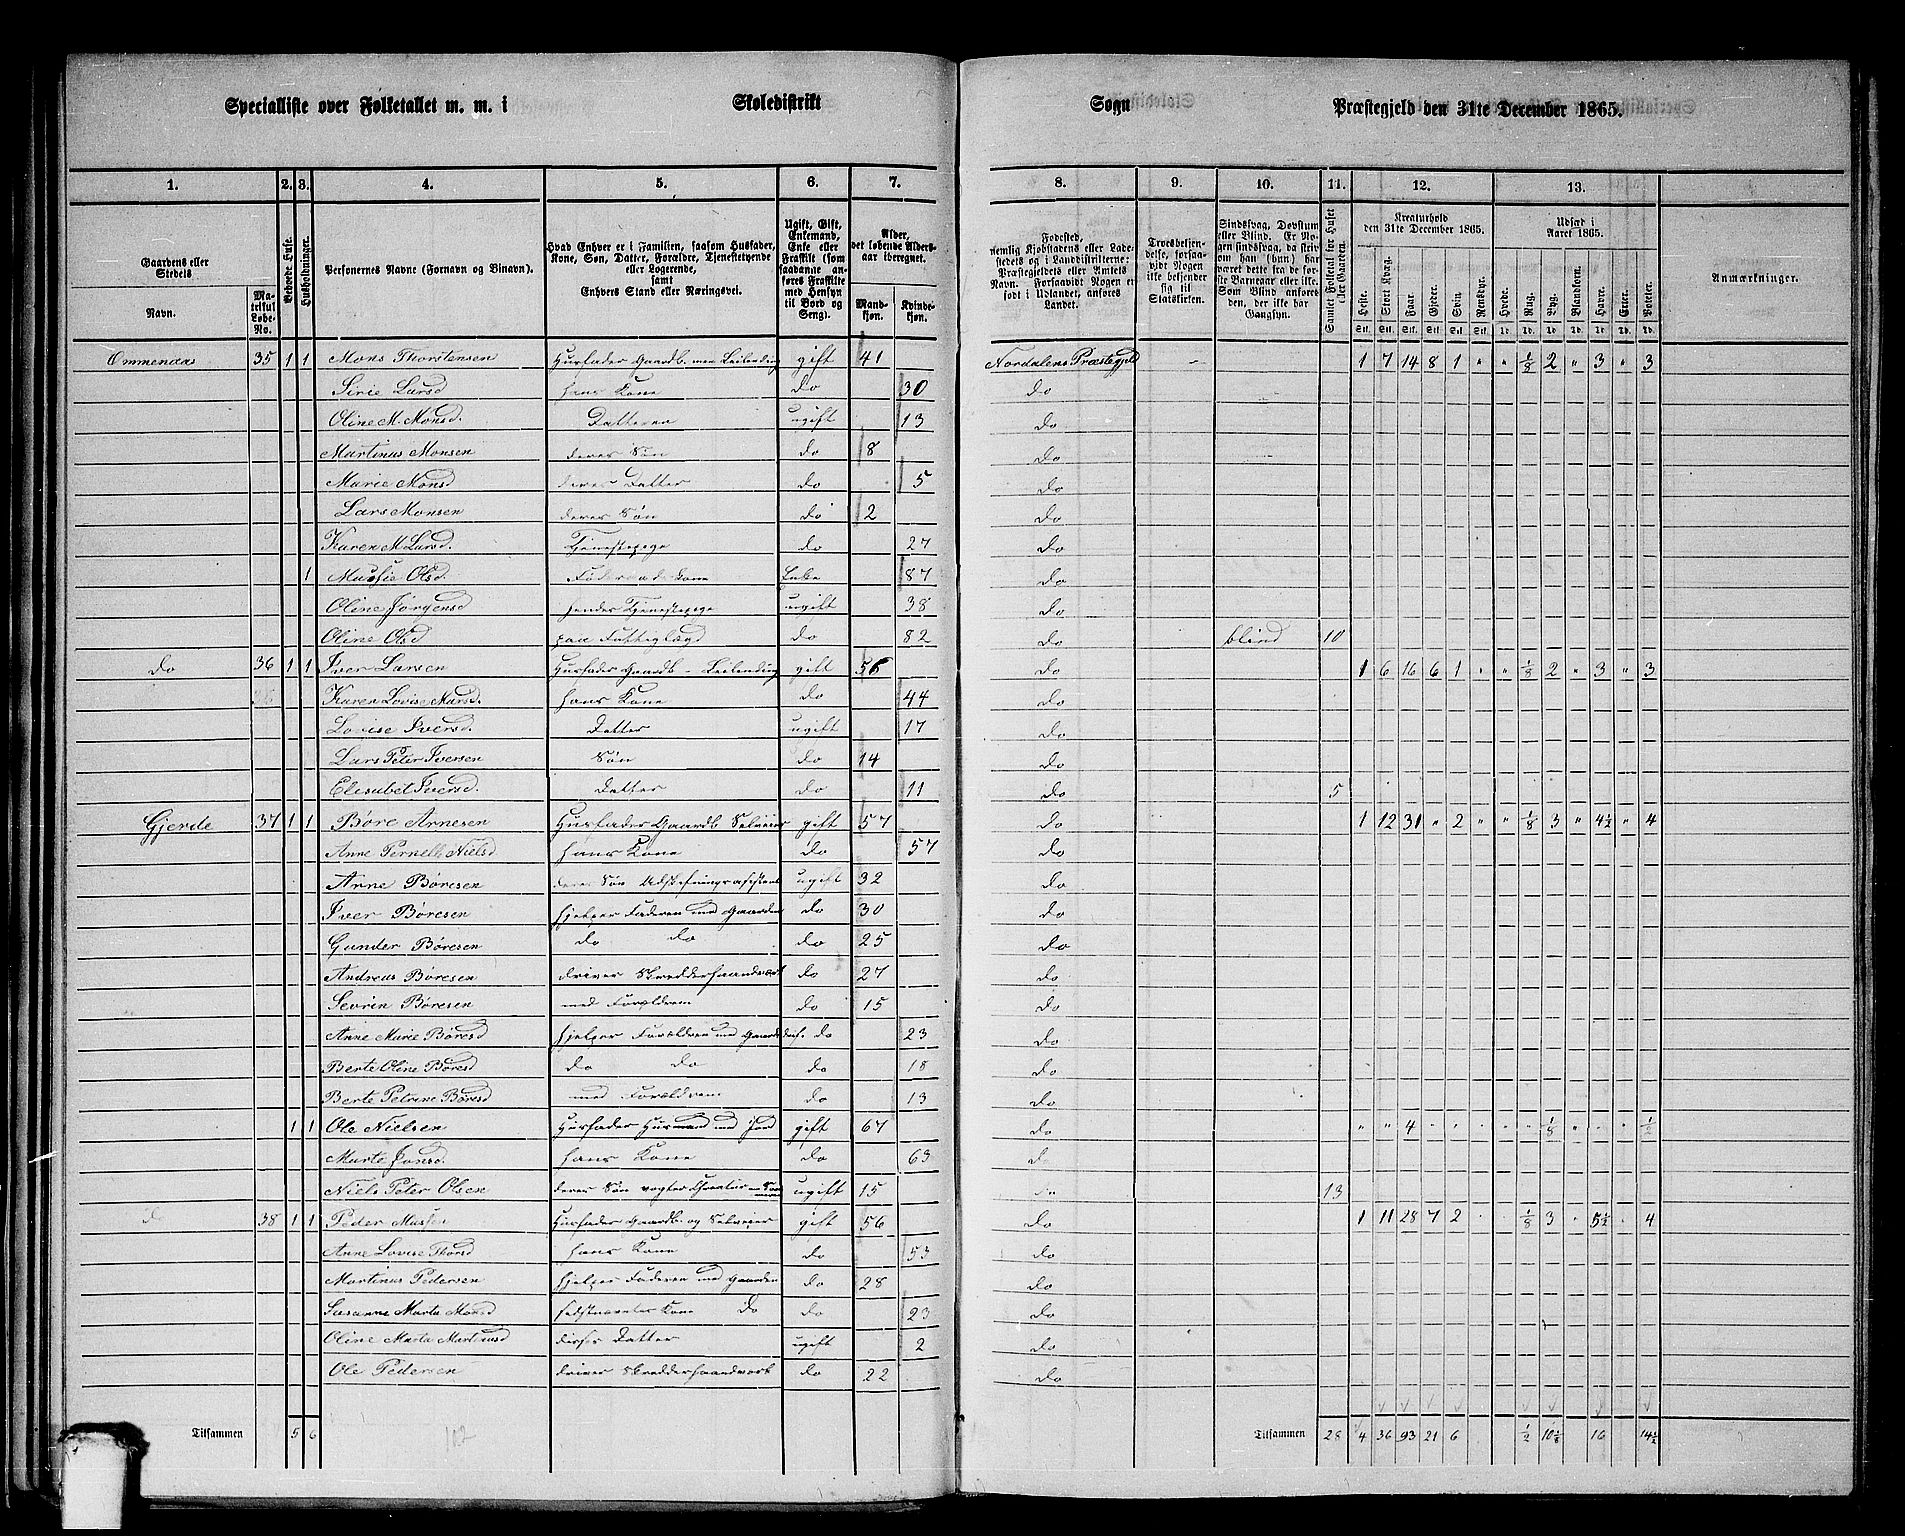 Specialliste over Folketallet m. m. i Skoledistrikt Sogn Præstegjeld den 31te December 1865.
1. 2. 3. 4. 5. 6. 7. 8. 9. 10. 11. 12. 13.
Gaardens eller Stedets
Navn.
Matrikul Løbe-No.
Beboede Huse.
Husholdninger.
Personernes Navne (Fornavn og Binavn).
Hvad Enhver er i Familien, saasom Husfader, Kone, Søn, Datter, Forældre, Tjenestetyende eller Logerende, samt Enhvers Stand eller Næringsvei.
Ugift, Gift, Enkemand, Enke eller Fraskilt (som saadanne anføres Fraskilte med Hensyn til Bord og Seng).
Alder, det løbende Aldersaar iberegnet.
Mandkjøn. Kvindekjøn.
Fødested, nemlig Kjøbstadens eller Ladestedets og i Landdistrikterne: Præstegjeldets eller Amtets Navn. Forsaavidt Nogen er født i Udlandet, anføres Landet.
Troesbekjendelse, forsaavidt Nogen ikke bekjender sig til Statskirken.
Sindssvag, Døvstum eller Blind. Er Nogen sindssvag, da skriv om han (hun) har været dette fra de første Barneaar eller ikke. Som Blind anføres den, der ikke har Gangsyn.
Samlet Folketal for Huset eller Gaarden.
Kreaturhold den 31te December 1865.
Heste. Stort Kvæg. Faar. Gjeder. Svin. Rensdyr.
Udsæd i Aaret 1865.
Hvede. Rug. Byg. Blandkorn. Havre. Erter. Poteter.
Anmærkninger.
Ommenaas 35 1 1 Mons Thorstensen Husfader Gaardb. med Leilending gift 41 Nordalens Præstegjeld - 1 7 14 8 1 " " 1/8 2 " 3 " 3
Sirie Larsd hans Kone do 30 do
Oline M. Monsd. Datteren ugift 13 do
Martinus Monsen deres Søn do 8 do
Marie Monsd deres Datter do 5 do
Lars Monsen deres Søn do 2 do
Karen M Larsd. Tjenestepige do 27 do
1 Massie Olsd. Føderaadskone Enke 87 do
Oline Jørgensd hendes Tjenestepige ugift 38 do
Oline Olsd paa Fattiglægd do 82 do blind 10
do 36 1 1 Iver Larsen Husfader Gaardb - Leilending gift 56 do 1 6 16 6 1 " " 1/8 2 " 3 " 3
Karen Lovise Marsd. hans Kone do 44 do
Lovise Iversd. Datter ugift 17 do
Lars Peter Iversen Søn do 14 do
Elisabet Iversd. Datter do 11 do 5
Gjerde 37 1 1 Børe Arnesen Husfader Gaardb Selveier gift 57 do 1 12 31 " 2 " " 1/8 3 " 4 1/2 " 4
Anne Pernelle Nielsd hans Kone do 57 do
Arne Børesen deres Søn Udskiftningsassistent ugift 32 do
Iver Børesen hjelper Faderen med Gaarden do 30 do
Gunder Børesen do do do 25 do
Andreas Børesen driver Skrædderhaandværk do 27 do
Sevrin Børesen med Forældrene do 15 do
Anne Marie Børesd hjelper Forældren med Gaardsdrif. do 23 do
Berte Oline Børesd do do do 18 do
Berte Petrine Børesd med Forældrene do 13 do
1 1 Ole Nielsen Husfader Husmand med Jord gift 67 do " " 4 " " " " " 1/8 " " " 1/2
Marte Jonsd. hans Kone do 63 do
Niels Peter Olsen deres Søn vogter Kreatur om Sommeren ugift 15 do 13
do 38 1 1 Peder Massen Husfader Gaardb. og Selveier gift 56 do 1 11 28 7 2 " " 1/8 3 " 5 1/2 " 4
Anne Lovise Thorsd hans Kone do 53 do
Martinus Pedersen hjelper Faderen med Gaarden do 28 do
Susanne Marta Monsd sidstnævntes Kone do do 23 do
Oline Marta Martinusd disses Datter ugift 2 do
Ole Pedersen driver Skrædderhaandverk do 22 do
Tilsammen 5 6 Tilsammen 28 4 36 93 21 6 1/2 10 1/8 16 14 1/2
102